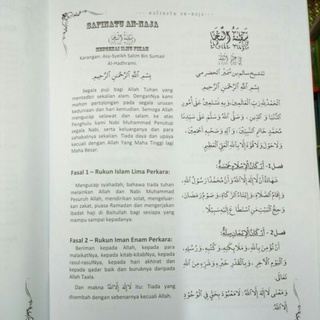 safinatu an-naja
SAFINATU AN-NAJA
سفينة النجا
MENGENAI ILMU FEKAH
Karangan: Asy-Syeikh Salim bin Sumair
Al-Hadhrami.
بِسْمِ اللَّهِ الرَّحْمَنِ الرَّحِيمِ
Segala puji bagi Allah Tuhan yang
mentadbir sekalian alam. DenganNya kami
mohon pertolongan pada segala urusan
keduniaan dan hari kemudian. Semoga Allah
mengurniai selawat dan salam ke atas
Penghulu kami Nabi Muhammad Penutup
segala Nabi, serta keluarganya dan para
sahabatnya sekalian. Tiada daya dan upaya
kecuali dengan Allah Yang Maha Tinggi lagi
Maha Besar.
Fasal 1 – Rukun Islam Lima Perkara:
Mengucap syahadah, bahawa tiada tuhan
melainkan Allah dan Nabi Muhammad
Pesuruh Allah, mendirikan solat, mengeluarkan
zakat, puasa Ramadan dan mengerjakan
ibadat haji di Baitullah bagi sesiapa yang
mampu sampai kepadanya.
Fasal 2 – Rukun Iman Enam Perkara:
Beriman kepada Allah, kepada para
malaikatNya, kepada kitab-kitabNya, kepada
rasul-rasulNya, kepada hari akhirat dan
kepada qadar baik dan buruknya daripada
Allah Taala.
Dan makna لَا إِلَهَ إِلَّا اللَّهُ itu: Tiada yang
disembah dengan sebenarnya kecuali Allah.
سفينة النجا
للشيخ سالم بن سمير الحضرمي
بِسْمِ اللَّهِ الرَّحْمَنِ الرَّحِيمِ
الْحَمْدُ لِلَّهِ رَبِّ الْعَالَمِينَ، وَبِهِ نَسْتَعِينُ عَلَى أُمُورِ
الدُّنْيَا وَالدِّينِ، وَصَلَّى اللَّهُ وَسَلَّمَ عَلَى سَيِّدِنَا
مُحَمَّدٍ خَاتَمِ النَّبِيِّينَ، وَآلِهِ وَصَحْبِهِ أَجْمَعِينَ،
وَلَا حَوْلَ وَلَا قُوَّةَ إِلَّا بِاللَّهِ الْعَلِيِّ الْعَظِيمِ.
فصل 1- أَرْكَانُ الْإِسْلَامِ خَمْسَةٌ:
شَهَادَةُ أَنْ لَا إِلَهَ إِلَّا اللَّهُ وَأَنَّ مُحَمَّدًا رَسُولُ اللَّهِ،
وَإِقَامُ الصَّلَاةِ، وَإِيتَاءُ الزَّكَاةِ، وَصَوْمُ رَمَضَانَ،
وَحِجُّ الْبَيْتِ مَنِ اسْتَطَاعَ إِلَيْهِ سَبِيلًا.
فصل 2- أَرْكَانُ الْإِيمَانِ سِتَّةٌ:
أَنْ تُؤْمِنَ بِاللَّهِ، وَمَلَائِكَتِهِ، وَكُتُبِهِ، وَرُسُلِهِ،
وَالْيَوْمِ الْآخِرِ، وَبِالْقَدَرِ خَيْرِهِ وَشَرِّهِ مِنَ اللَّهِ
تَعَالَى.
وَمَعْنَى لَا إِلَهَ إِلَّا اللَّهُ: لَا مَعْبُودَ بِحَقٍّ فِي الْوُجُودِ